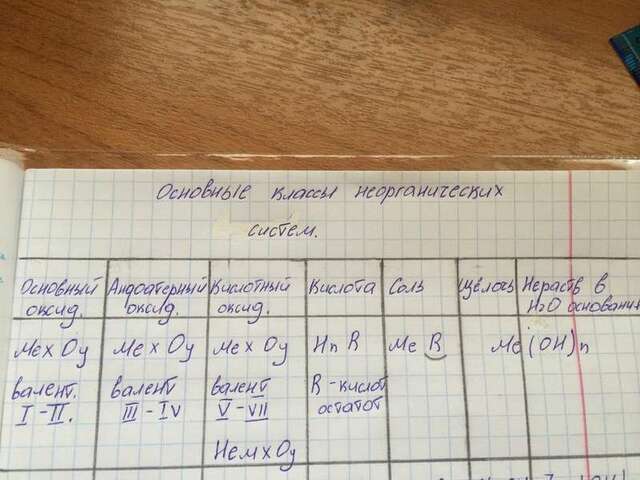 Основные классы неорганических
систем.
Основный оксид.
Андоатерный оксид.
Кислотный оксид.
Кислота
Соль
Щёлочь
Нераств в H2O основания
Mex Oy
Me x Oy
Me x Oy
Hn R
Me R
Me (OH)n
валент. I - II.
валент III - IV
валент V - VII
R - кислот остатот
Нем x Oy